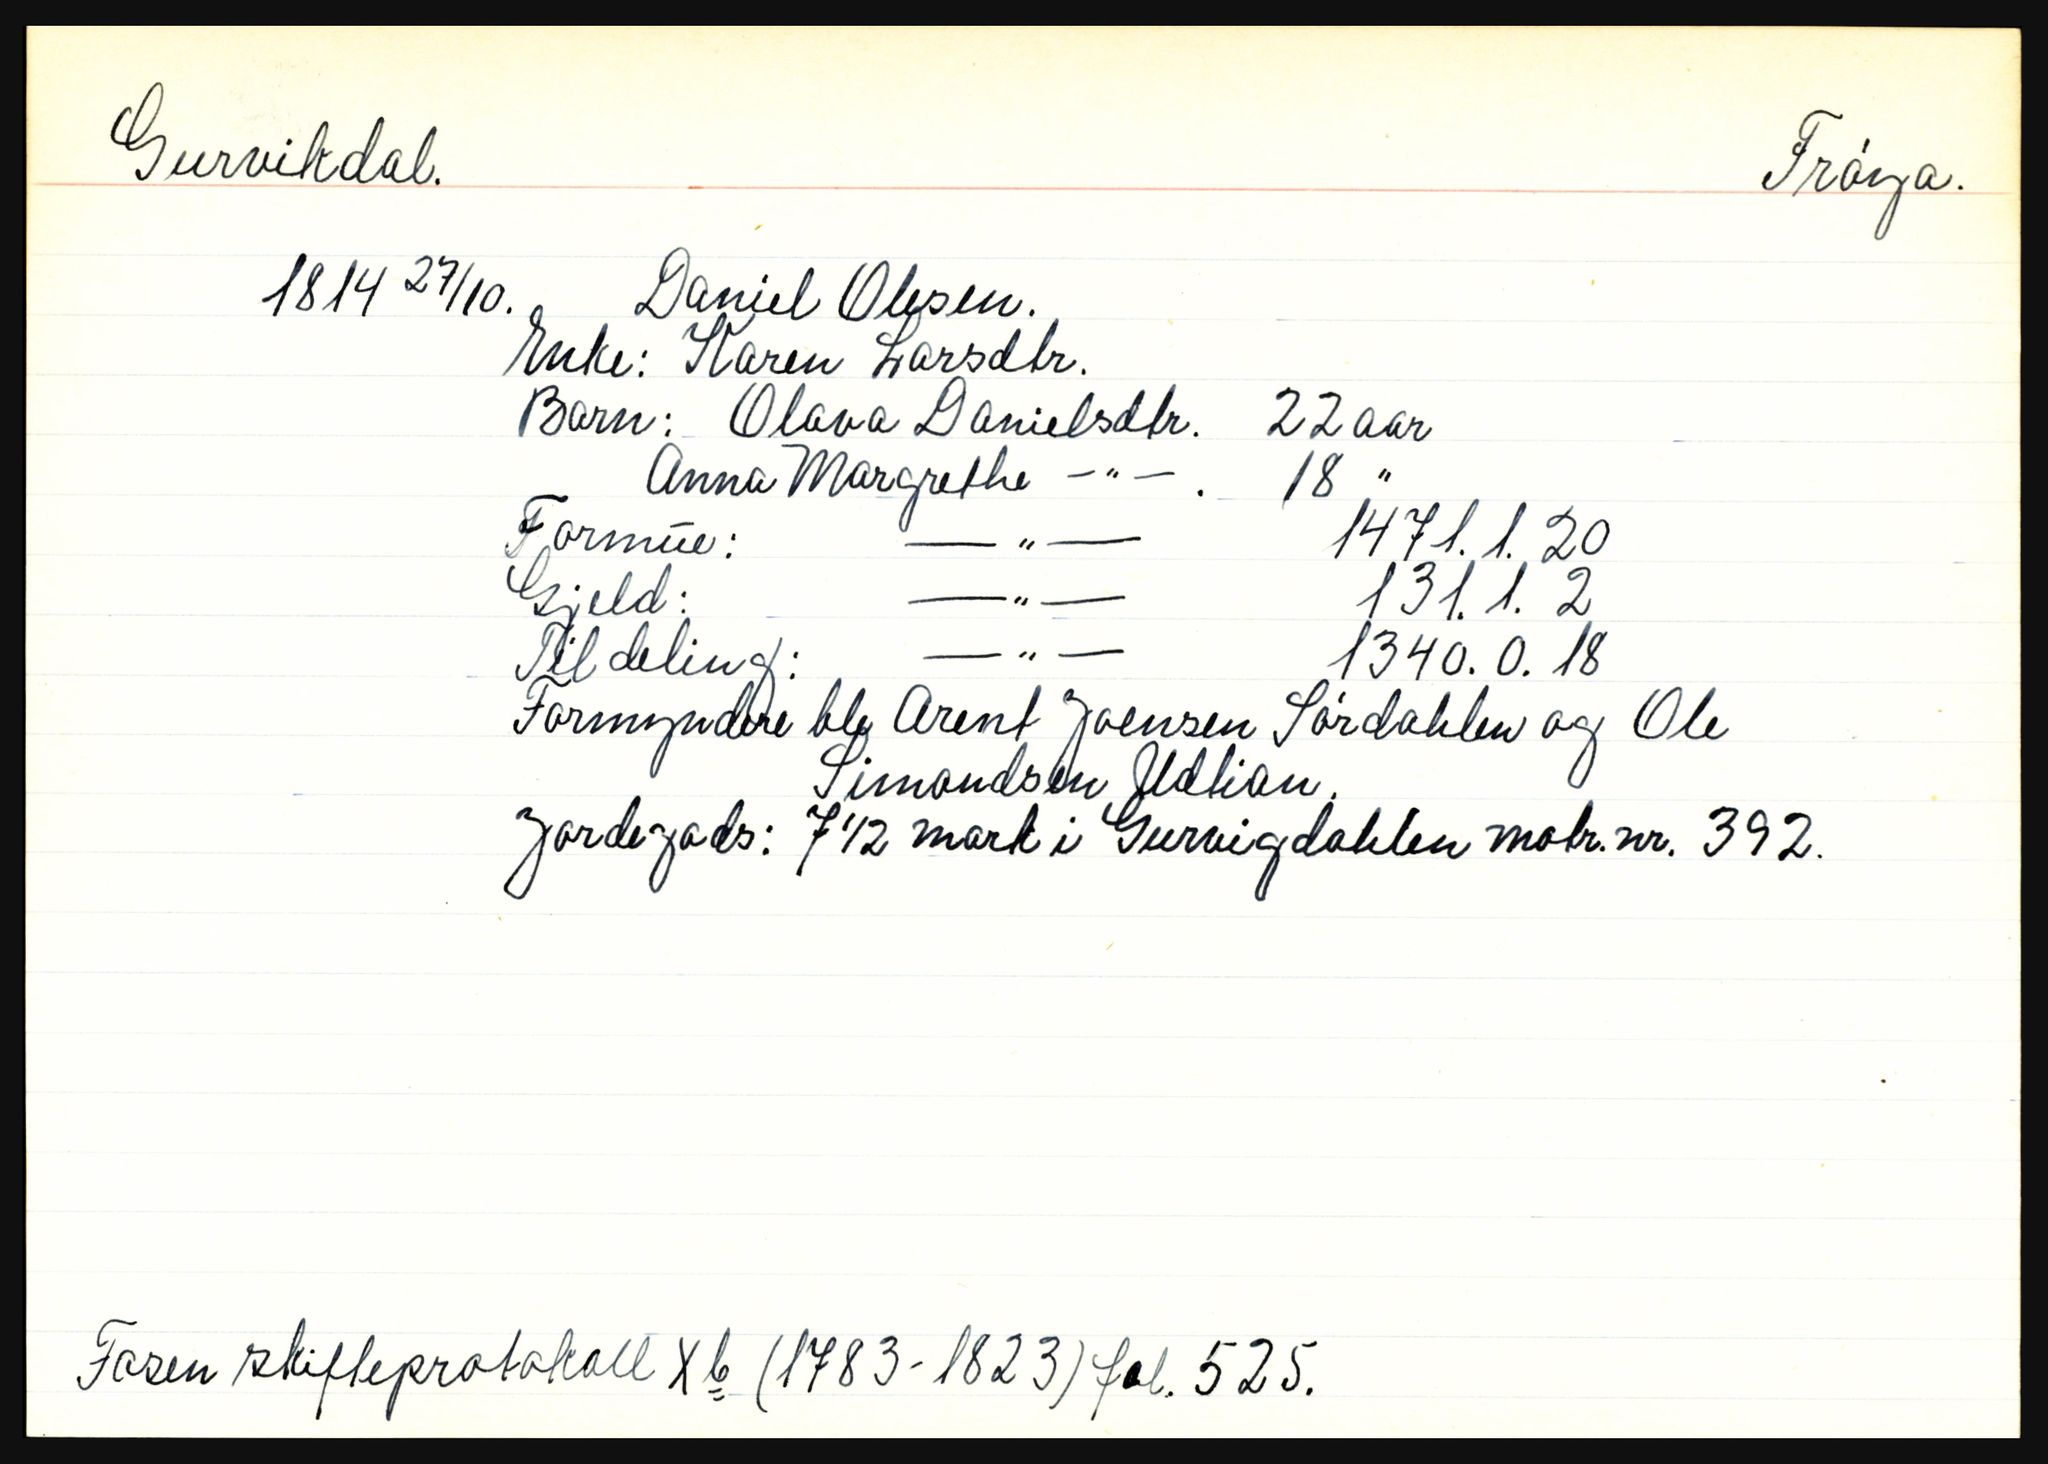 Gurvikdal. Frøya.
1814 27/10. Daniel Olesen.
Enke: Karen Larsdtr.
Barn: Olava Danielsdtr. 22 aar
Anna Margrethe —"— . 18 "
Formue: —"— 1471. 1. 20
Gjeld: —"— 131. 1. 2
Til deling: —"— 1340. 0. 18
Formyndere ble Arent Joensen Sørdahlen og Ole
Simondsen Udlian.
Jordegods: 7 1/2 mark i Gurvigdahlen matr. nr. 392.
Fosen skifteprotokoll X b (1783-1823) fol. 525.